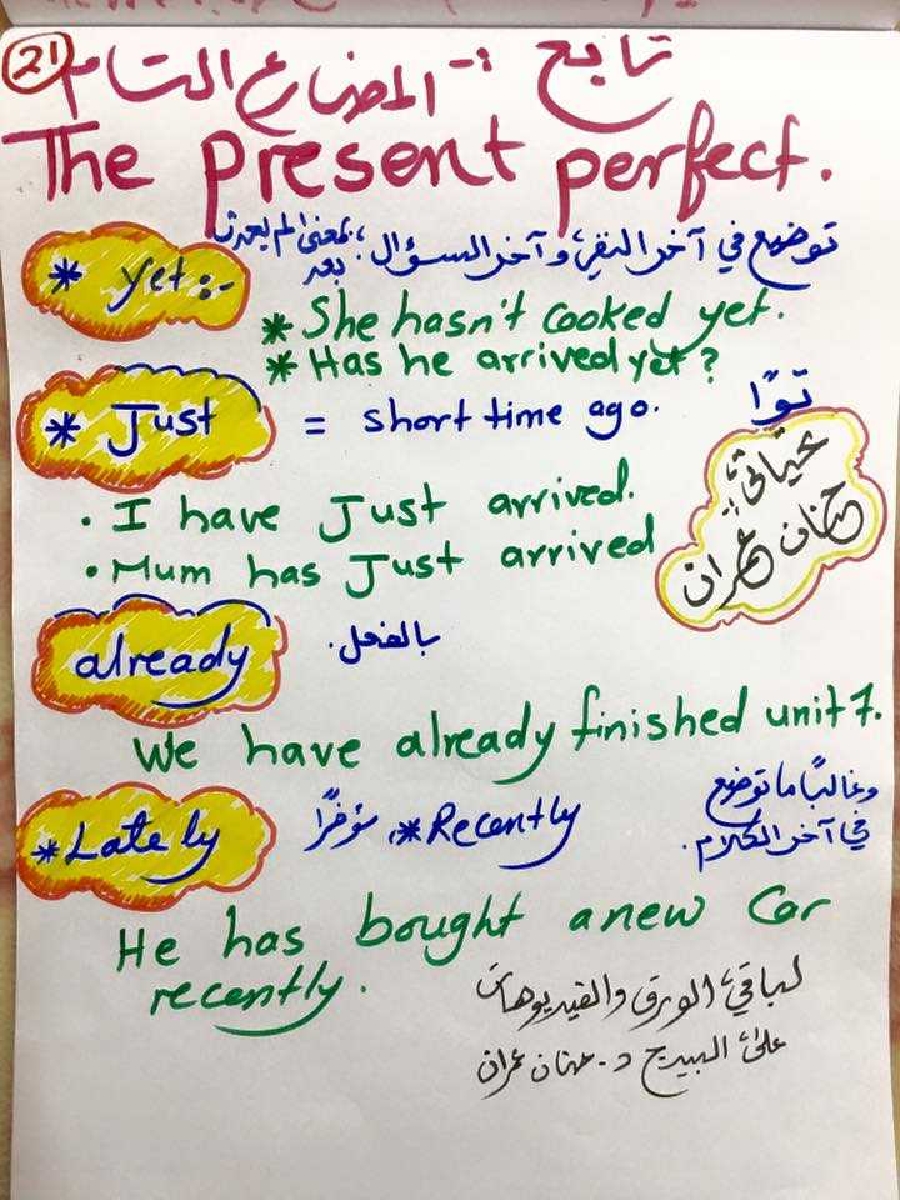 21
تابع :- المضارع التام
The present perfect.
* yet :- توضع في آخر النفي و آخر السؤال، بمعنى لم يحدث بعد
* She hasn't cooked yet.
* Has he arrived yet?
* Just = short time ago. توًا
تحياتي:
حنان عمران
. I have Just arrived.
. Mum has Just arrived
already بالفعل.
We have already finished unit 7.
* Lately مؤخرًا ، * Recently
وغالبًا ما توضع
في آخر الكلام.
He has bought a new Car
recently.
لباقي الورق والفيديوهات
على البيدج د. حنان عمران